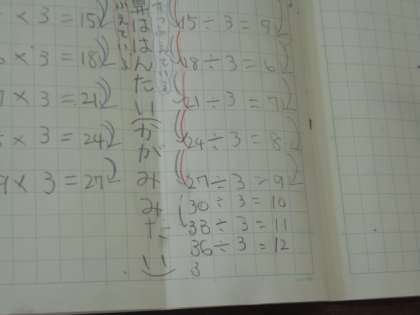 × 3 = 15
× 3 = 18
× 3 = 21
× 3 = 24
9 × 3 = 27
ははんたい
(かがみみたい)
15 ÷ 3 = 9
18 ÷ 3 = 6
21 ÷ 3 = 7
24 ÷ 3 = 8
27 ÷ 3 = 9
30 ÷ 3 = 10
33 ÷ 3 = 11
36 ÷ 3 = 12
3